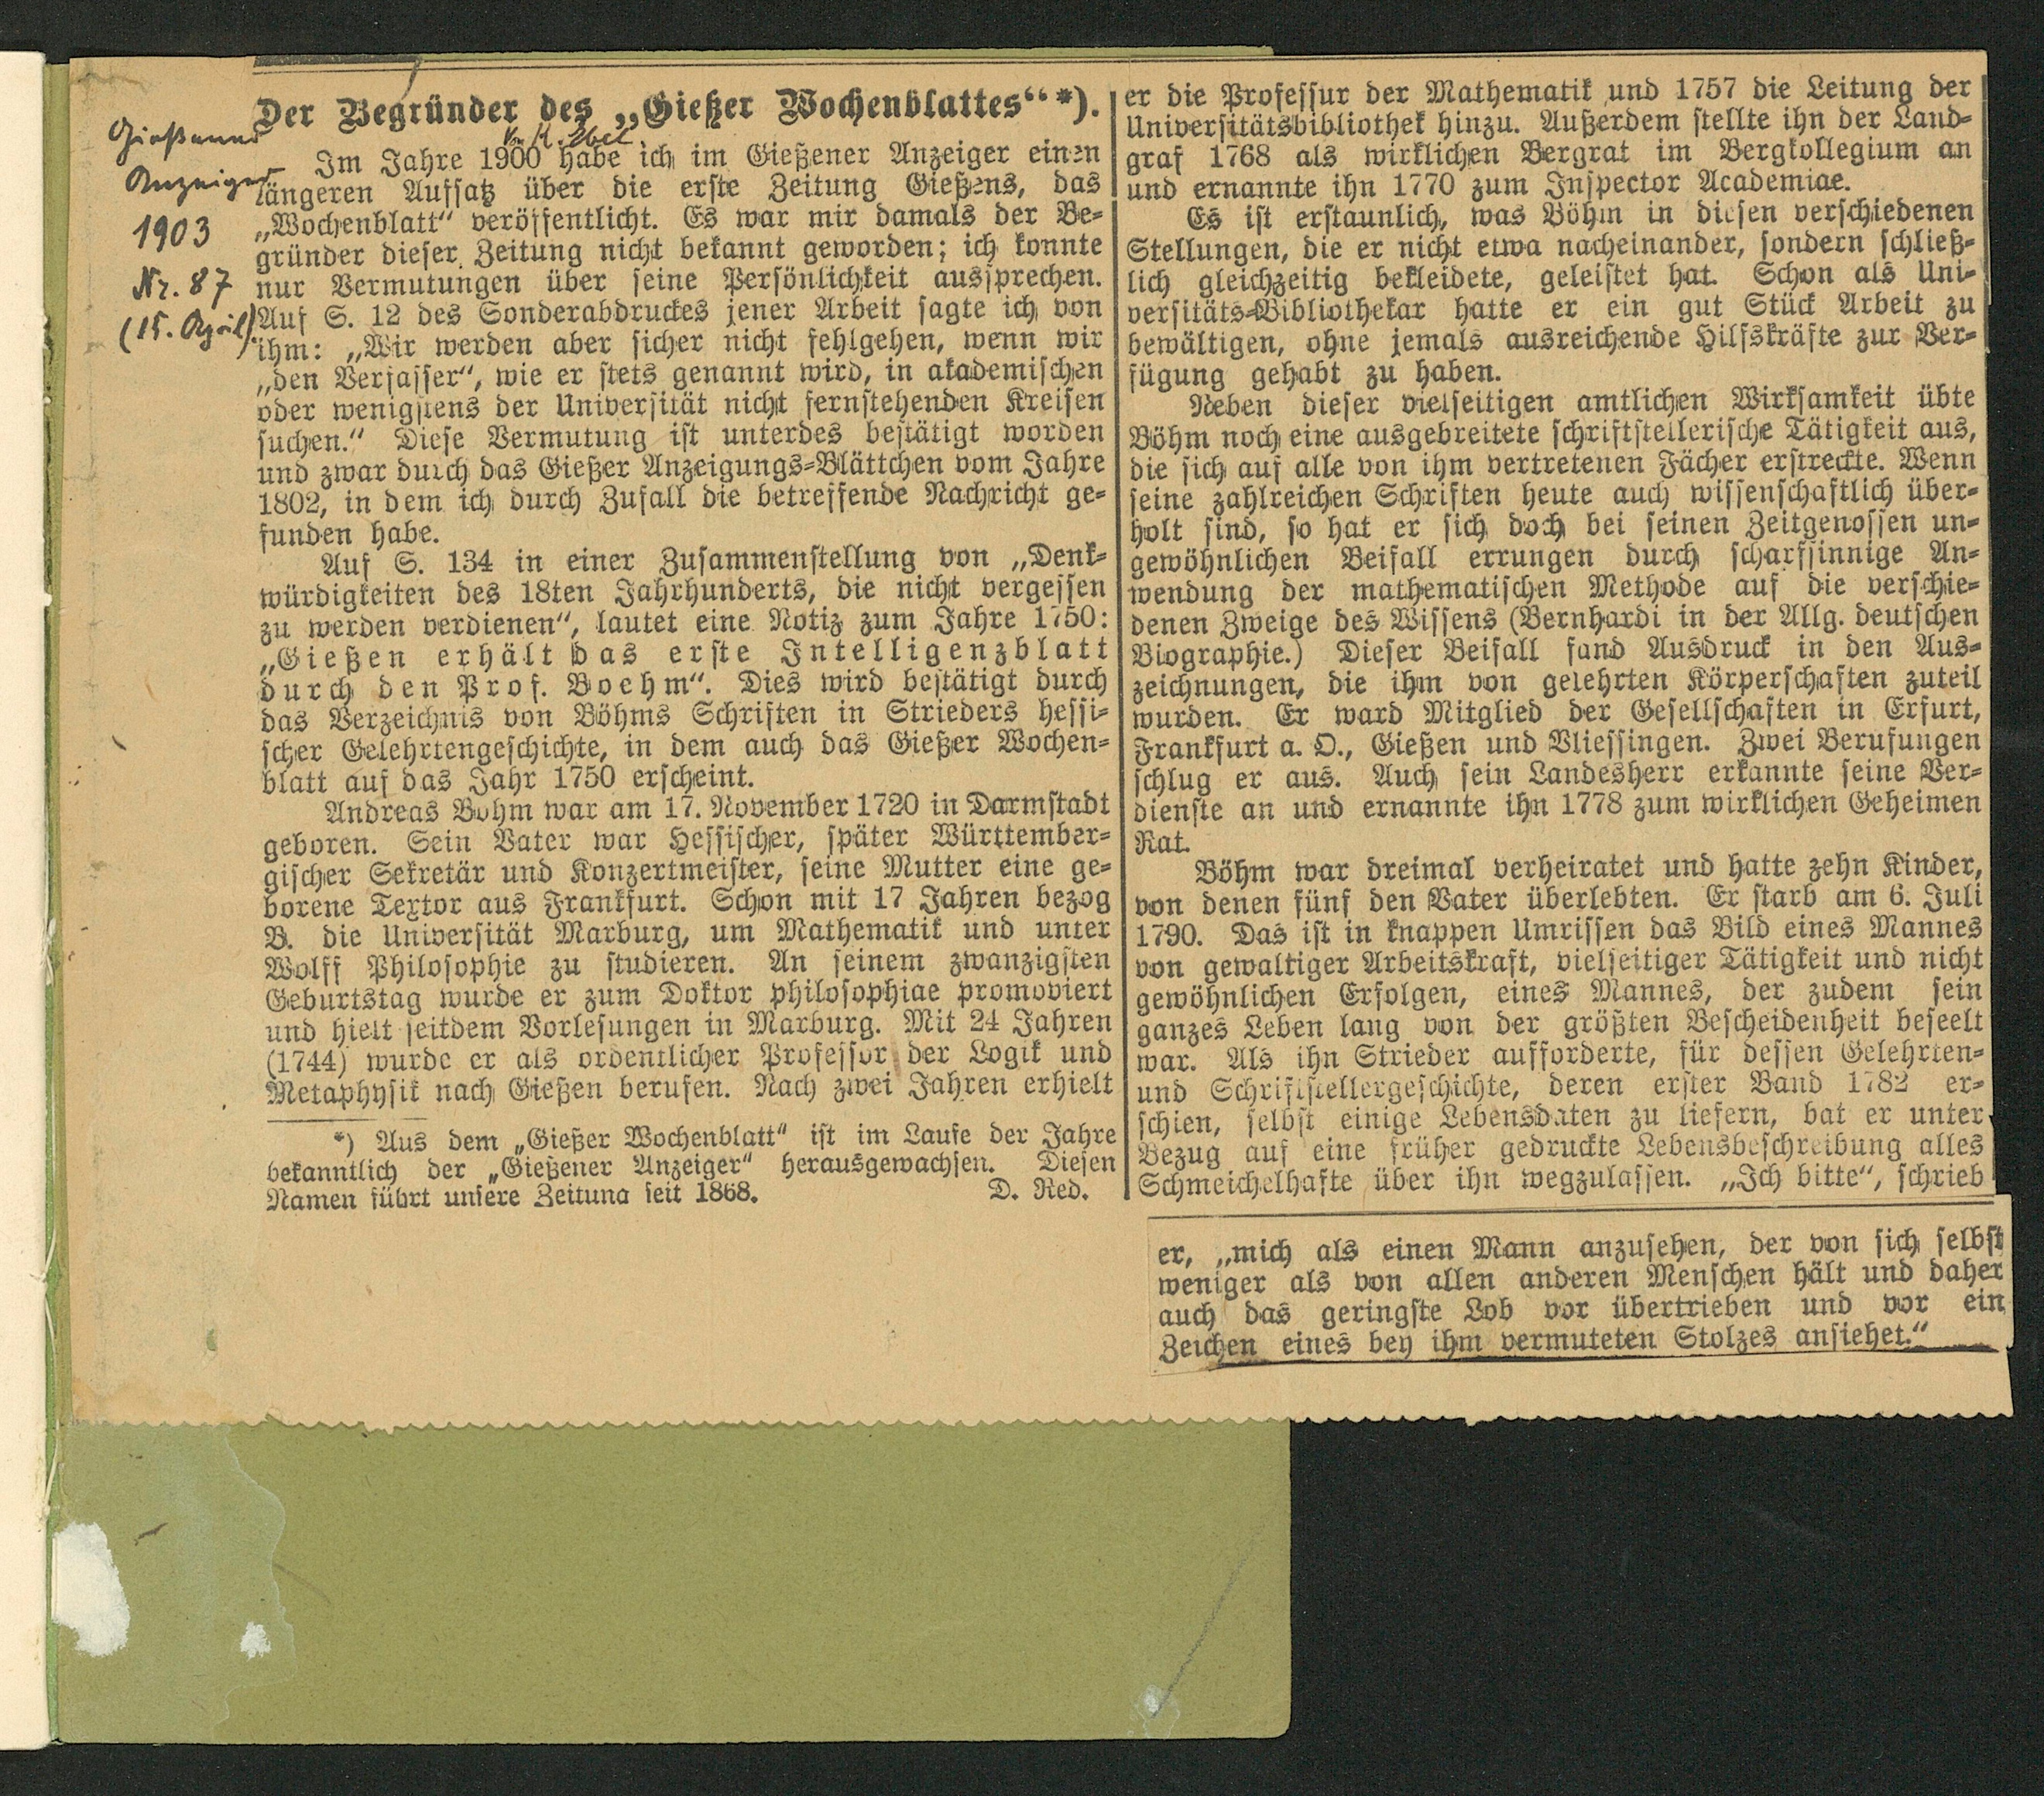 Gießener
Anzeiger
1903
Nr. 87
(15. April).
Der Begründer des „Gießer Wochenblattes“*).
Von K. Ebel.
Im Jahre 1900 habe ich im Gießener Anzeiger einen
längeren Aufsatz über die erste Zeitung Gießens, das
„Wochenblatt“ veröffentlicht. Es war mir damals der Be-
gründer dieser Zeitung nicht bekannt geworden; ich konnte
nur Vermutungen über seine Persönlichkeit aussprechen.
Auf S. 12 des Sonderabdruckes jener Arbeit sagte ich von
ihm: „Wir werden aber sicher nicht fehlgehen, wenn wir
„den Verfasser“, wie er stets genannt wird, in akademischen
oder wenigstens der Universität nicht fernstehenden Kreisen
suchen.“ Diese Vermutung ist unterdes bestätigt worden
und zwar durch das Gießer Anzeigungs-Blättchen vom Jahre
1802, in dem ich durch Zufall die betreffende Nachricht ge-
funden habe.
Auf S. 134 in einer Zusammenstellung von „Denk-
würdigkeiten des 18ten Jahrhunderts, die nicht vergessen
zu werden verdienen“, lautet eine Notiz zum Jahre 1750:
„Gießen erhält das erste Intelligenzblatt
durch den Prof. Boehm“. Dies wird bestätigt durch
das Verzeichnis von Böhms Schriften in Strieders hessi-
scher Gelehrtengeschichte, in dem auch das Gießer Wochen-
blatt auf das Jahr 1750 erscheint.
Andreas Böhm war am 17. November 1720 in Darmstadt
geboren. Sein Vater war Hessischer, später Württember-
gischer Sekretär und Konzertmeister, seine Mutter eine ge-
borene Textor aus Frankfurt. Schon mit 17 Jahren bezog
B. die Universität Marburg, um Mathematik und unter
Wolff Philosophie zu studieren. An seinem zwanzigsten
Geburtstag wurde er zum Doktor philosophiae promoviert
und hielt seitdem Vorlesungen in Marburg. Mit 24 Jahren
(1744) wurde er als ordentlicher Professor der Logik und
Metaphysik nach Gießen berufen. Nach zwei Jahren erhielt
*) Aus dem „Gießer Wochenblatt“ ist im Laufe der Jahre
bekanntlich der „Gießener Anzeiger“ herausgewachsen. Diesen
Namen führt unsere Zeitung seit 1868. D. Red.
er die Professur der Mathematik und 1757 die Leitung der
Universitätsbibliothek hinzu. Außerdem stellte ihn der Land-
graf 1768 als wirklichen Bergrat im Bergkollegium an
und ernannte ihn 1770 zum Inspector Academiae.
Es ist erstaunlich, was Böhm in diesen verschiedenen
Stellungen, die er nicht etwa nacheinander, sondern schließ-
lich gleichzeitig bekleidete, geleistet hat. Schon als Uni-
versitäts-Bibliothekar hatte er ein gut Stück Arbeit zu
bewältigen, ohne jemals ausreichende Hilfskräfte zur Ver-
fügung gehabt zu haben.
Neben dieser vielseitigen amtlichen Wirksamkeit übte
Böhm noch eine ausgebreitete schriftstellerische Tätigkeit aus,
die sich auf alle von ihm vertretenen Fächer erstreckte. Wenn
seine zahlreichen Schriften heute auch wissenschaftlich über-
holt sind, so hat er sich doch bei seinen Zeitgenossen un-
gewöhnlichen Beifall errungen durch scharfsinnige An-
wendung der mathematischen Methode auf die verschie-
denen Zweige des Wissens (Bernhardi in der Allg. deutschen
Biographie.) Dieser Beifall fand Ausdruck in den Aus-
zeichnungen, die ihm von gelehrten Körperschaften zuteil
wurden. Er ward Mitglied der Gesellschaften in Erfurt,
Frankfurt a. O., Gießen und Vliessingen. Zwei Berufungen
schlug er aus. Auch sein Landesherr erkannte seine Ver-
dienste an und ernannte ihn 1778 zum wirklichen Geheimen
Rat.
Böhm war dreimal verheiratet und hatte zehn Kinder,
von denen fünf den Vater überlebten. Er starb am 6. Juli
1790. Das ist in knappen Umrissen das Bild eines Mannes
von gewaltiger Arbeitskraft, vielseitiger Tätigkeit und nicht
gewöhnlichen Erfolgen, eines Mannes, der zudem sein
ganzes Leben lang von der größten Bescheidenheit beseelt
war. Als ihn Strieder aufforderte, für dessen Gelehrten-
und Schriftstellergeschichte, deren erster Band 1782 er-
schien, selbst einige Lebensdaten zu liefern, bat er unter
Bezug auf eine früher gedruckte Lebensbeschreibung alles
Schmeichelhafte über ihn wegzulassen. „Ich bitte“, schrieb
er, „mich als einen Mann anzusehen, der von sich selbst
weniger als von allen anderen Menschen hält und daher
auch das geringste Lob vor übertrieben und vor ein
Zeichen eines bey ihm vermuteten Stolzes ansiehet.“